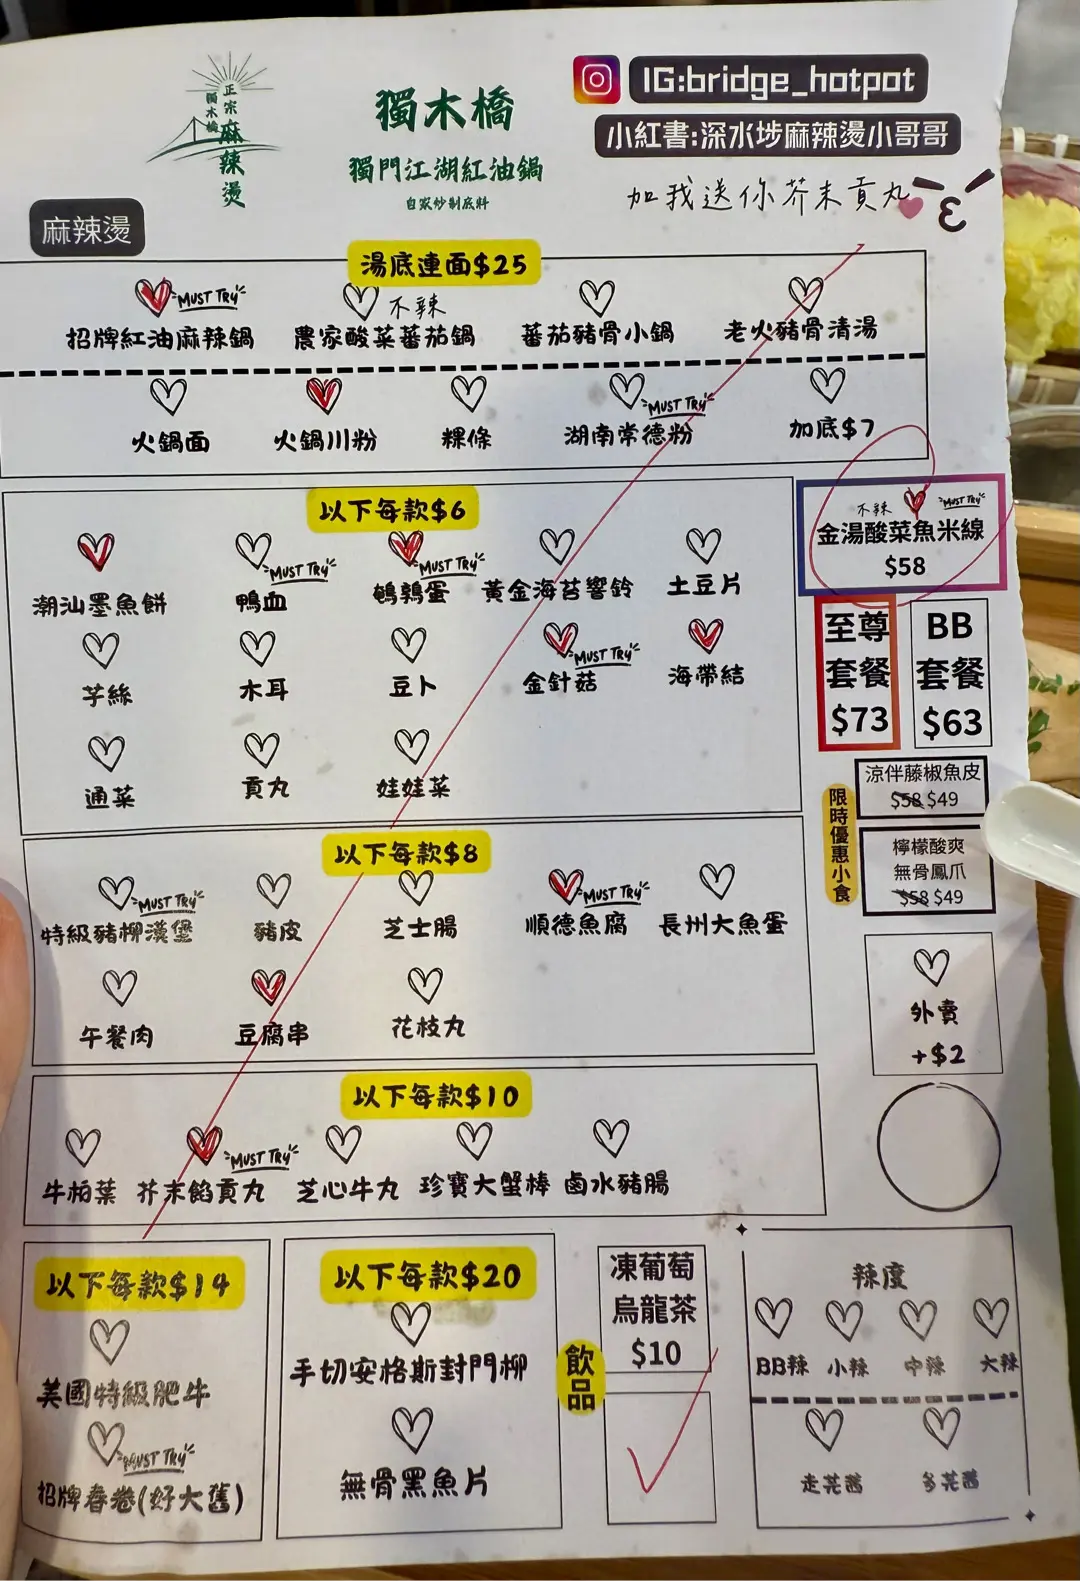 正宗
獨木橋
麻辣燙
獨木橋
獨門江湖紅油鍋
自家炒制底料
IG:bridge_hotpot
小紅書:深水埗麻辣燙小哥哥
加我送你芥末貢丸
麻辣燙
湯底連面$25
MUST TRY
不辣
招牌紅油麻辣鍋 農家酸菜蕃茄鍋 蕃茄豬骨小鍋 老火豬骨清湯
MUST TRY
火鍋面 火鍋川粉 粿條 湖南常德粉 加底$7
以下每款$6
MUST TRY MUST TRY
潮汕墨魚餅 鴨血 鵪鶉蛋 黃金海苔響鈴 土豆片
MUST TRY
芋絲 木耳 豆卜 金針菇 海帶結
通菜 貢丸 娃娃菜
不辣 MUST TRY
金湯酸菜魚米線
$58
至尊
套餐
$73
BB
套餐
$63
限時優惠小食
涼伴藤椒魚皮
$58 $49
檸檬酸爽
無骨鳳爪
$58 $49
以下每款$8
MUST TRY MUST TRY
特級豬柳漢堡 豬皮 芝士腸 順德魚腐 長州大魚蛋
午餐肉 豆腐串 花枝丸
外賣
+$2
以下每款$10
MUST TRY
牛柏葉 芥末餡貢丸 芝心牛丸 珍寶大蟹棒 鹵水豬腸
以下每款$14
美國特級肥牛
MUST TRY
招牌春卷(好大舊)
以下每款$20
手切安格斯封門柳
無骨黑魚片
飲品
凍葡萄
烏龍茶
$10
辣度
BB辣 小辣 中辣 大辣
走芫茜 多芫茜